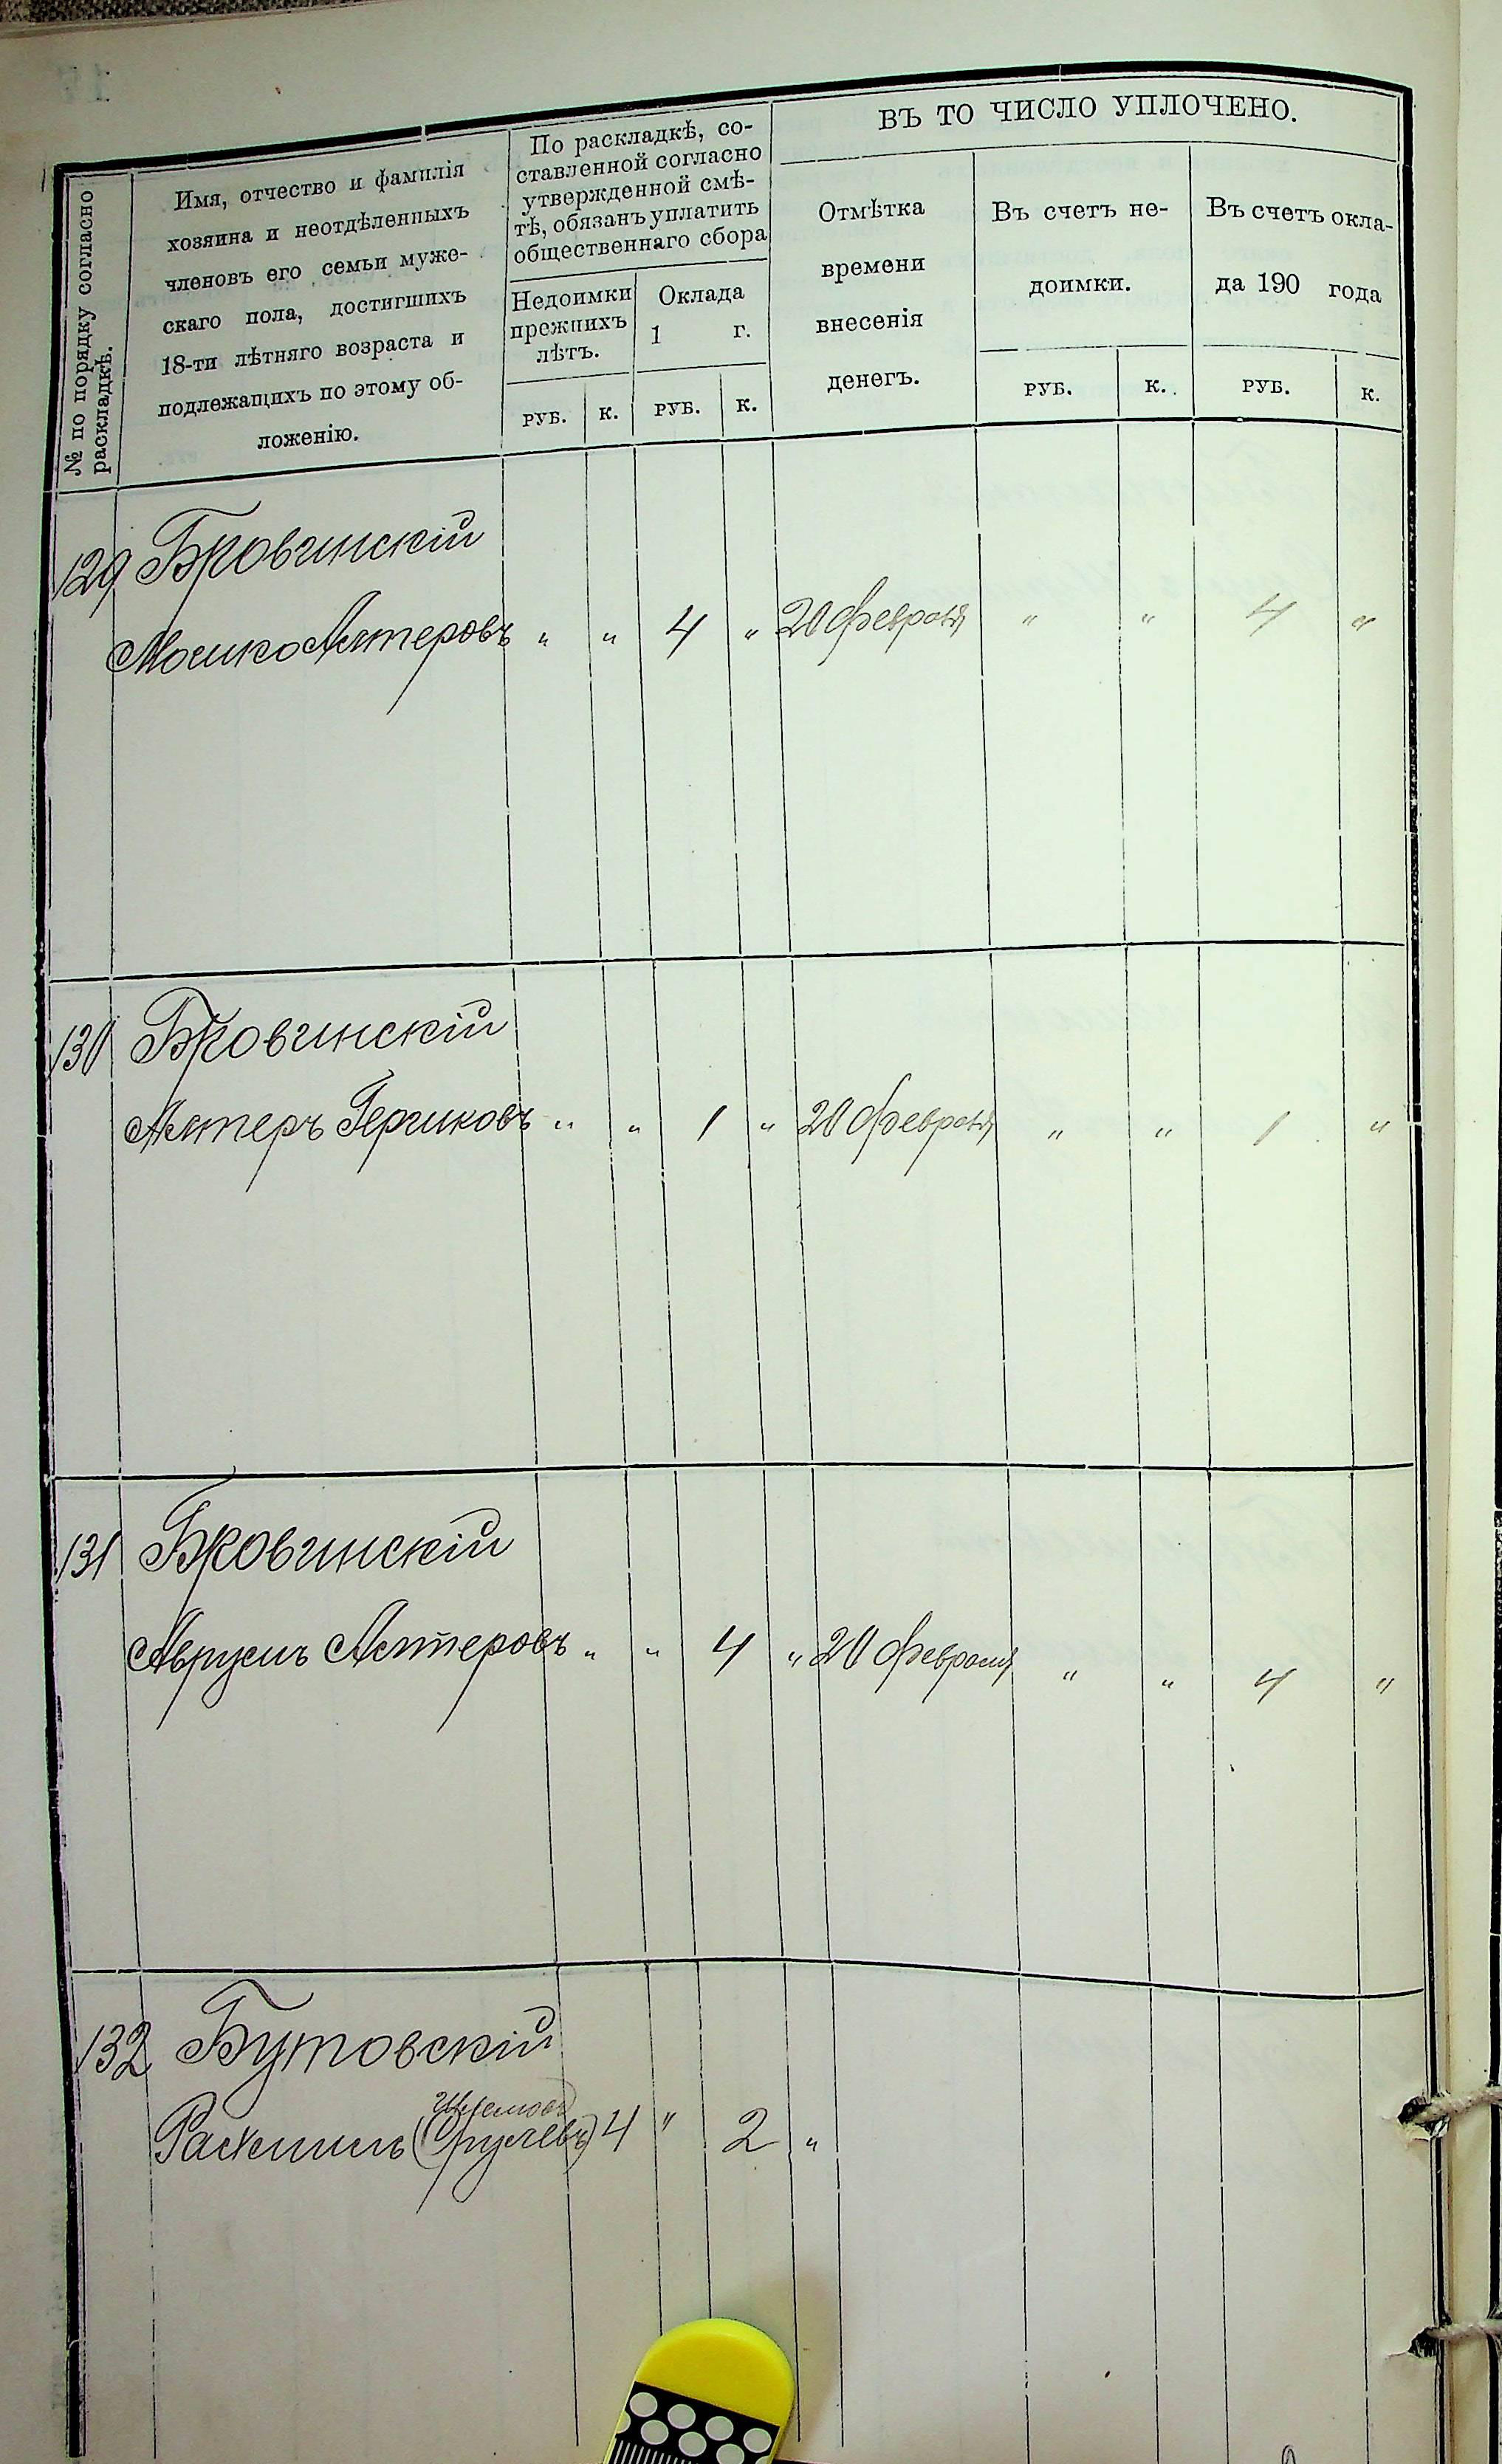 № по порядку согласно
раскладкѣ.
Имя, отчество и фамилія
хозяина и неотдѣленныхъ
членовъ его семьи муже-
скаго пола, достигшихъ
18-ти лѣтняго возраста и
подлежащихъ по этому об-
ложенію.
По раскладкѣ, со-
ставленной согласно
утвержденной смѣ-
тѣ, обязанъ уплатить
общественнаго сбора
Недоимки
прежнихъ
лѣтъ.
Оклада
1 г.
РУБ. К. РУБ. К.
ВЪ ТО ЧИСЛО УПЛОЧЕНО.
Отмѣтка
времени
внесенія
денегъ.
Въ счетъ не-
доимки.
РУБ. К.
Въ счетъ окла-
да 190 года
РУБ. К.
129 Бровинскій
Мошко Алтеровъ " " 4 " 20 февраля " " 4 "
130 Бровинскій
Алтеръ Гершковъ " " 1 " 20 февраля " " 1 "
131 Бровинскій
Аврумъ Алтеровъ " " 4 " 20 февраля " " 4 "
132 Бутовскій
Рахмиль 4 " 2 "